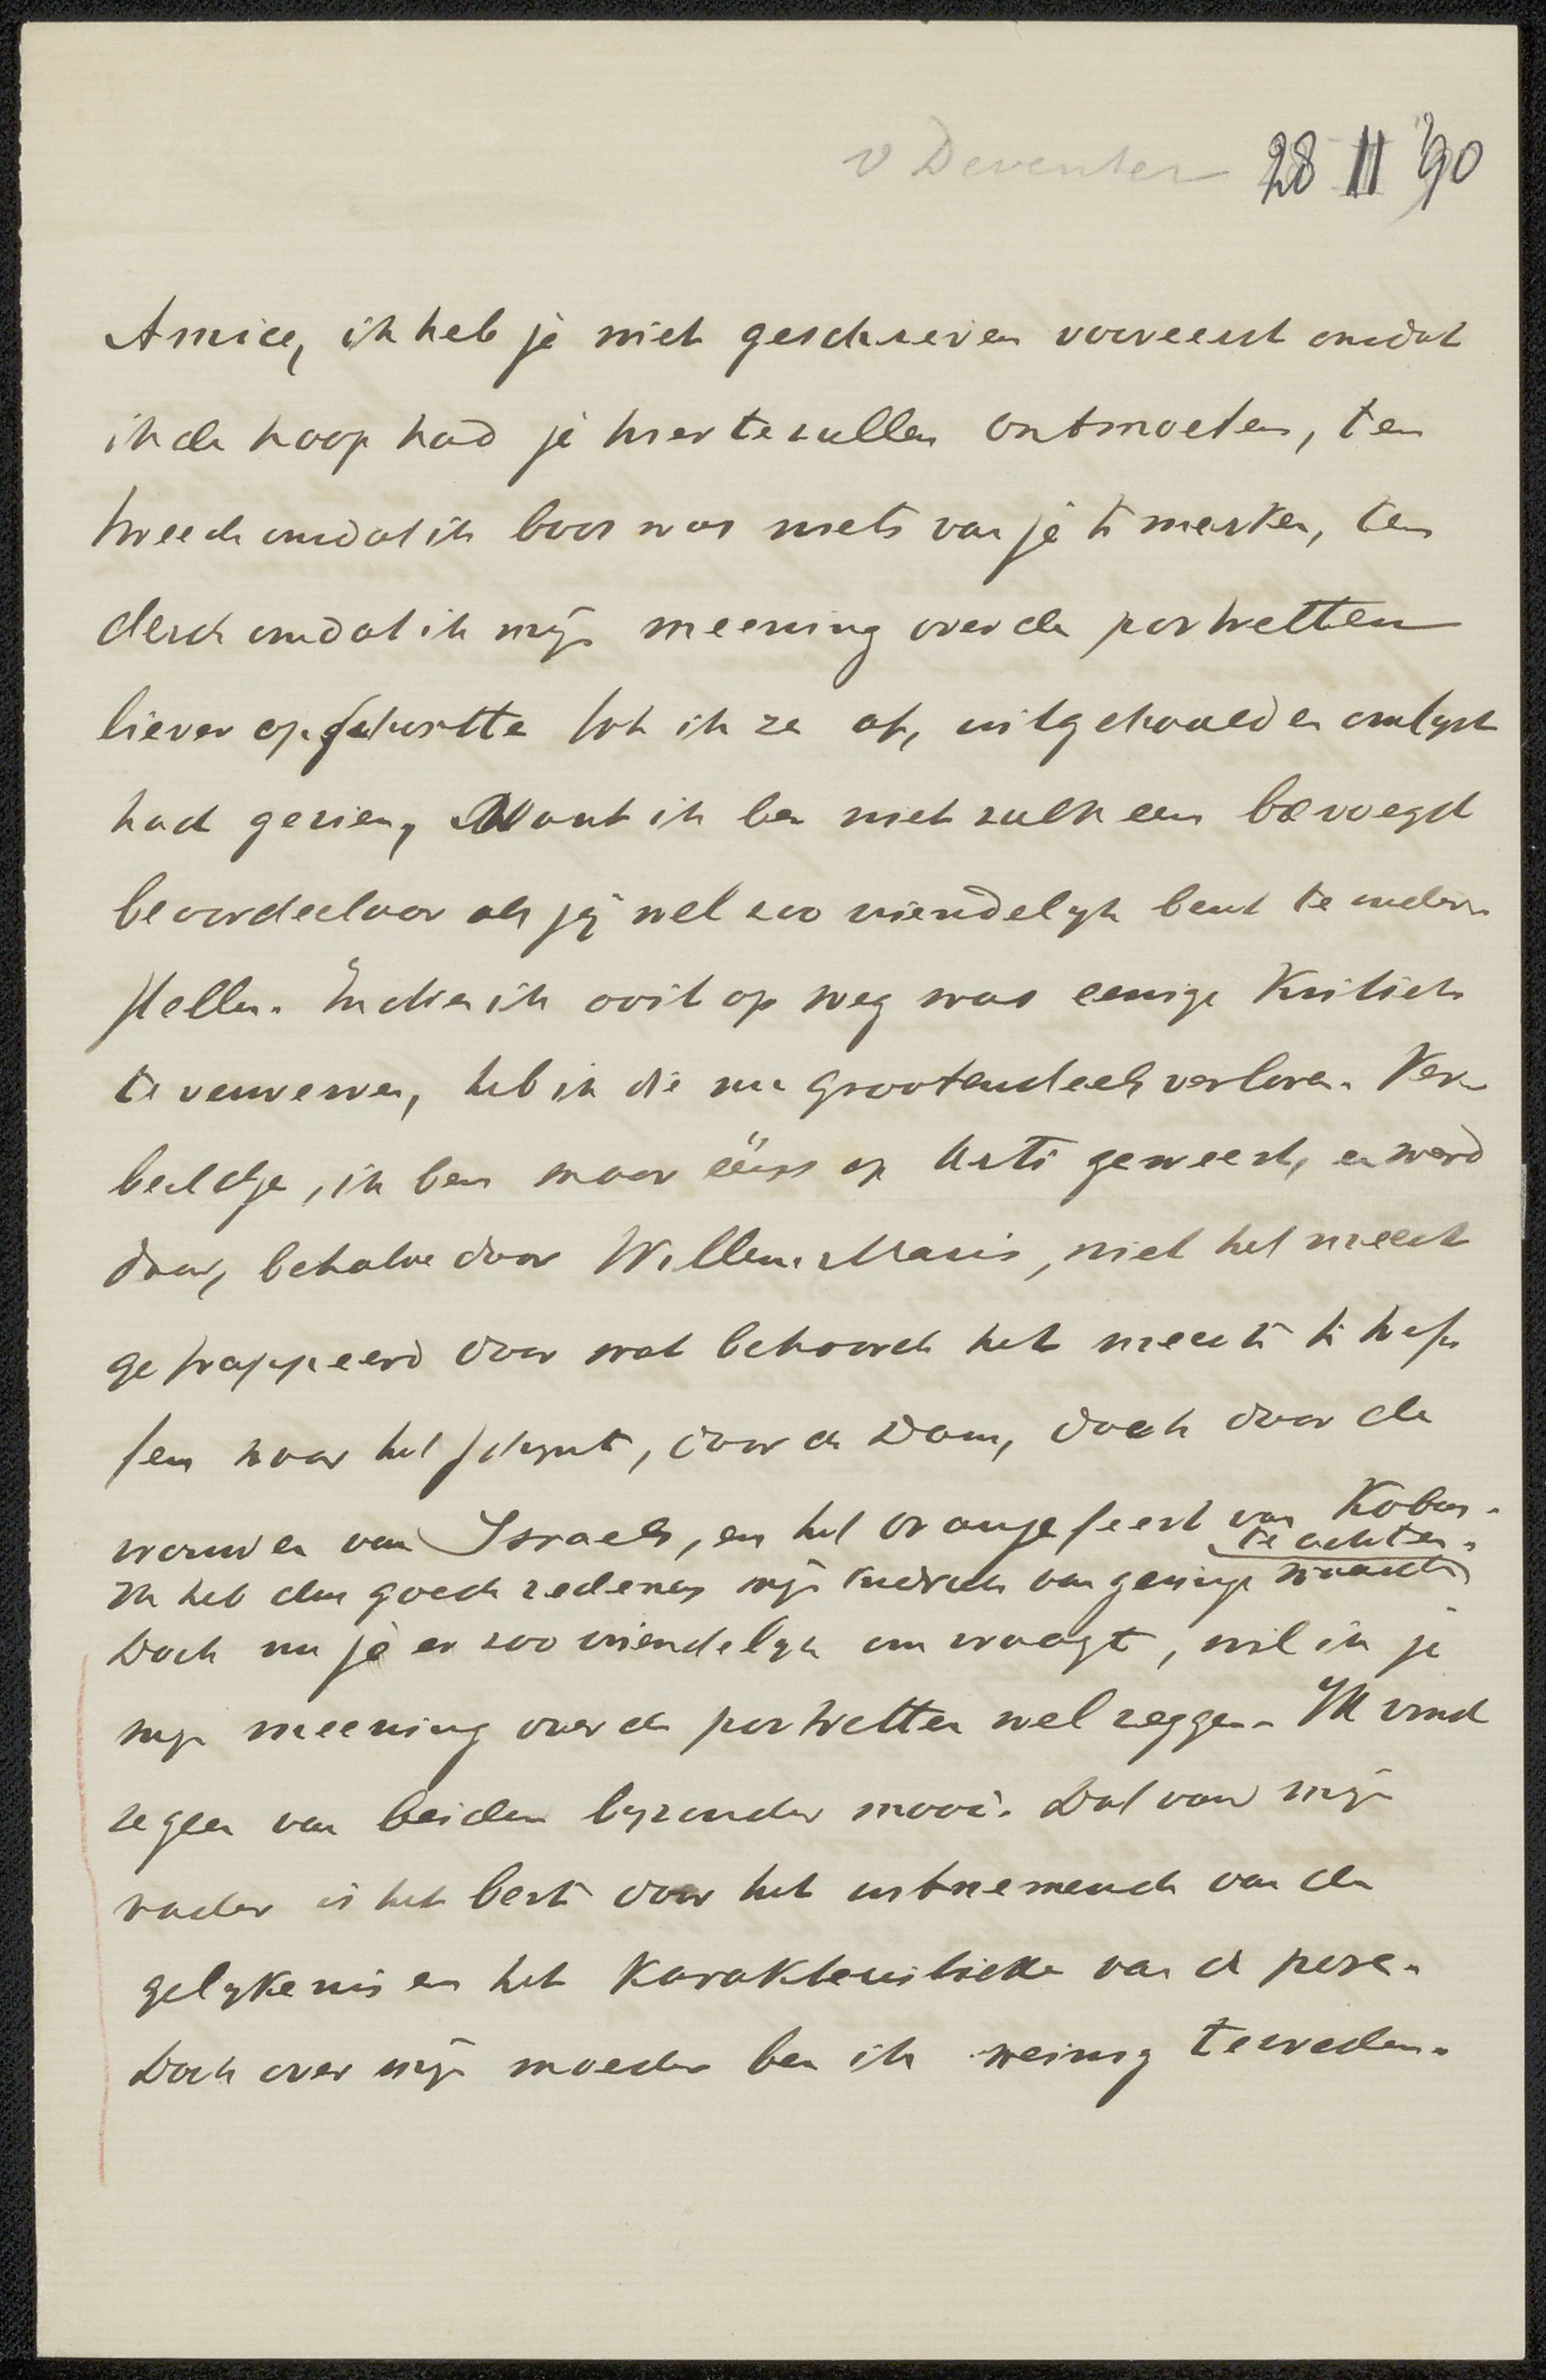 v Deventer 28 11 '90
Amice, ik heb je niet geschreven vooreerst omdat
ik de hoop had je hier te zullen ontmoeten, ten
tweede omdat ik boos was niets van je te merken, ten
derde omdat ik mijn meening over de portretten
liever opschortte tot ik ze af, uitgehaald en omlijst
had gezien, Want ik ben niet zulk een bevoegd
beoordeelaar als jij wel zoo vriendelijk bent te onder
stellen. Indien ik ooit op weg was eenige Kritiek
te verwerven, heb ik die nu grootendeels verloren. Ver
beeldje, ik ben maar ééns op Arti geweest, en werd
daar, behalve door Willem Maris, niet het meest
gefrappeerd door wat behoorde het meeste te tref
fen naar het schijnt, door de Dam, doch door de
vrouwen van Israels, en het oranjefeest van Kobus.
Ik heb dus goede redenen mijn indruk van geringe waarde te achten.
Doch nu je er zoo vriendelijk om vraagt, wil ik je
mijn meening over de portretten wel zeggen. Ik vind
ze geen van beiden byzonder mooi. Dat van mijn
vader is het best door het uitnemende van de
gelykenis en het Karakteristieke van de pose.
Doch over mijn moeder ben ik weinig tevreden.